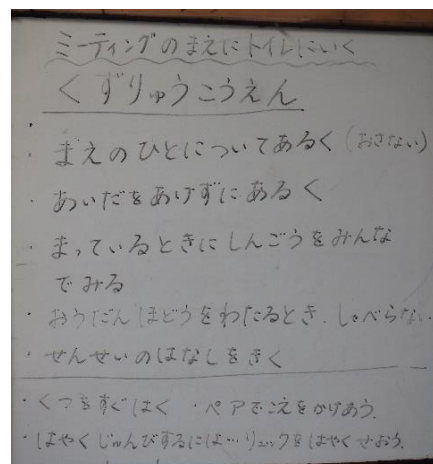 ミーティングのまえにトイレにいく
くずりゅうこうえん
・まえのひとについてあるく(おさない)
・あいだをあけずにあるく
・まっているときにしんごうをみんな
でみる
・おうだんほどうをわたるとき、しゃべらない
・せんせいのはなしをきく
・くつをすぐはく ・ペアでこえをかけあう。
・はやくじゅんびするには…リュックをはやくせおう。